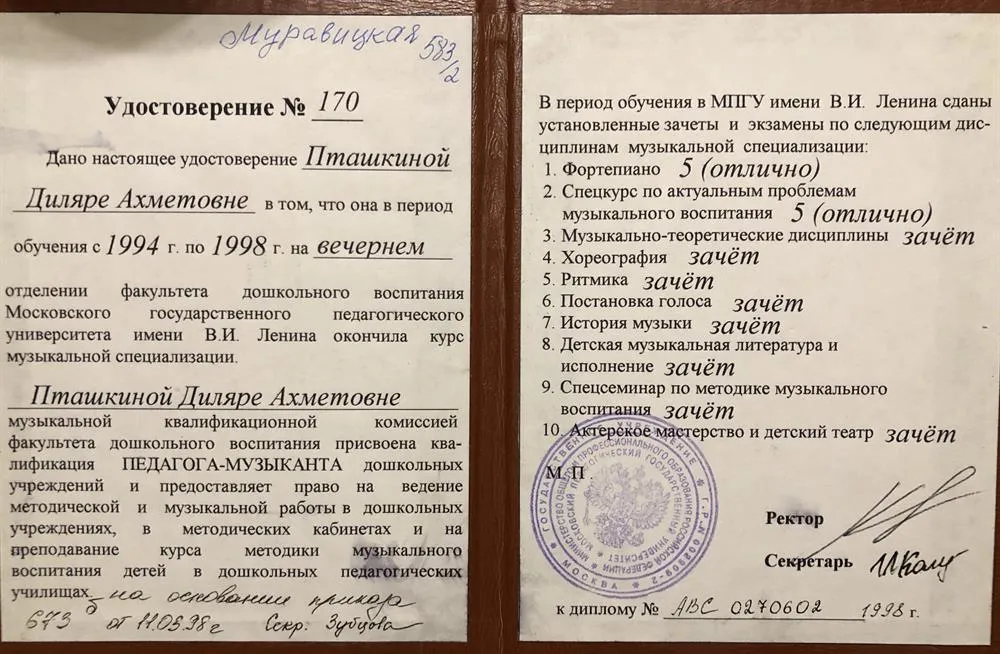 Муравицкая 583/2
Удостоверение № 170
Дано настоящее удостоверение Пташкиной
Диляре Ахметовне в том, что она в период
обучения с 1994 г. по 1998 г. на вечернем
отделении факультета дошкольного воспитания
Московского государственного педагогического
университета имени В.И. Ленина окончила курс
музыкальной специализации.
Пташкиной Диляре Ахметовне
музыкальной квалификационной комиссией
факультета дошкольного воспитания присвоена ква-
лификация ПЕДАГОГА-МУЗЫКАНТА дошкольных
учреждений и предоставляет право на ведение
методической и музыкальной работы в дошкольных
учреждениях, в методических кабинетах и на
преподавание курса методики музыкального
воспитания детей в дошкольных педагогических
училищах. на основании приказа
673 от 11.03.98г Секр. Зубцова
В период обучения в МПГУ имени В.И. Ленина сданы
установленные зачеты и экзамены по следующим дис-
циплинам музыкальной специализации:
1. Фортепиано 5 (отлично)
2. Спецкурс по актуальным проблемам
музыкального воспитания 5 (отлично)
3. Музыкально-теоретические дисциплины зачёт
4. Хореография зачёт
5. Ритмика зачёт
6. Постановка голоса зачёт
7. История музыки зачёт
8. Детская музыкальная литература и
исполнение зачёт
9. Спецсеминар по методике музыкального
воспитания зачёт
10. Актерское мастерство и детский театр зачёт
М. П.
ГОСУДАРСТВЕННОЕ УЧРЕЖДЕНИЕ
МИНИСТЕРСТВО ОБЩЕГО И ПРОФЕССИОНАЛЬНОГО ОБРАЗОВАНИЯ РОССИЙСКОЙ ФЕДЕРАЦИИ
МОСКОВСКИЙ ПЕДАГОГИЧЕСКИЙ ГОСУДАРСТВЕННЫЙ УНИВЕРСИТЕТ
МОСКВА
Ректор
Секретарь
к диплому № АВС 0270602 1998 г.